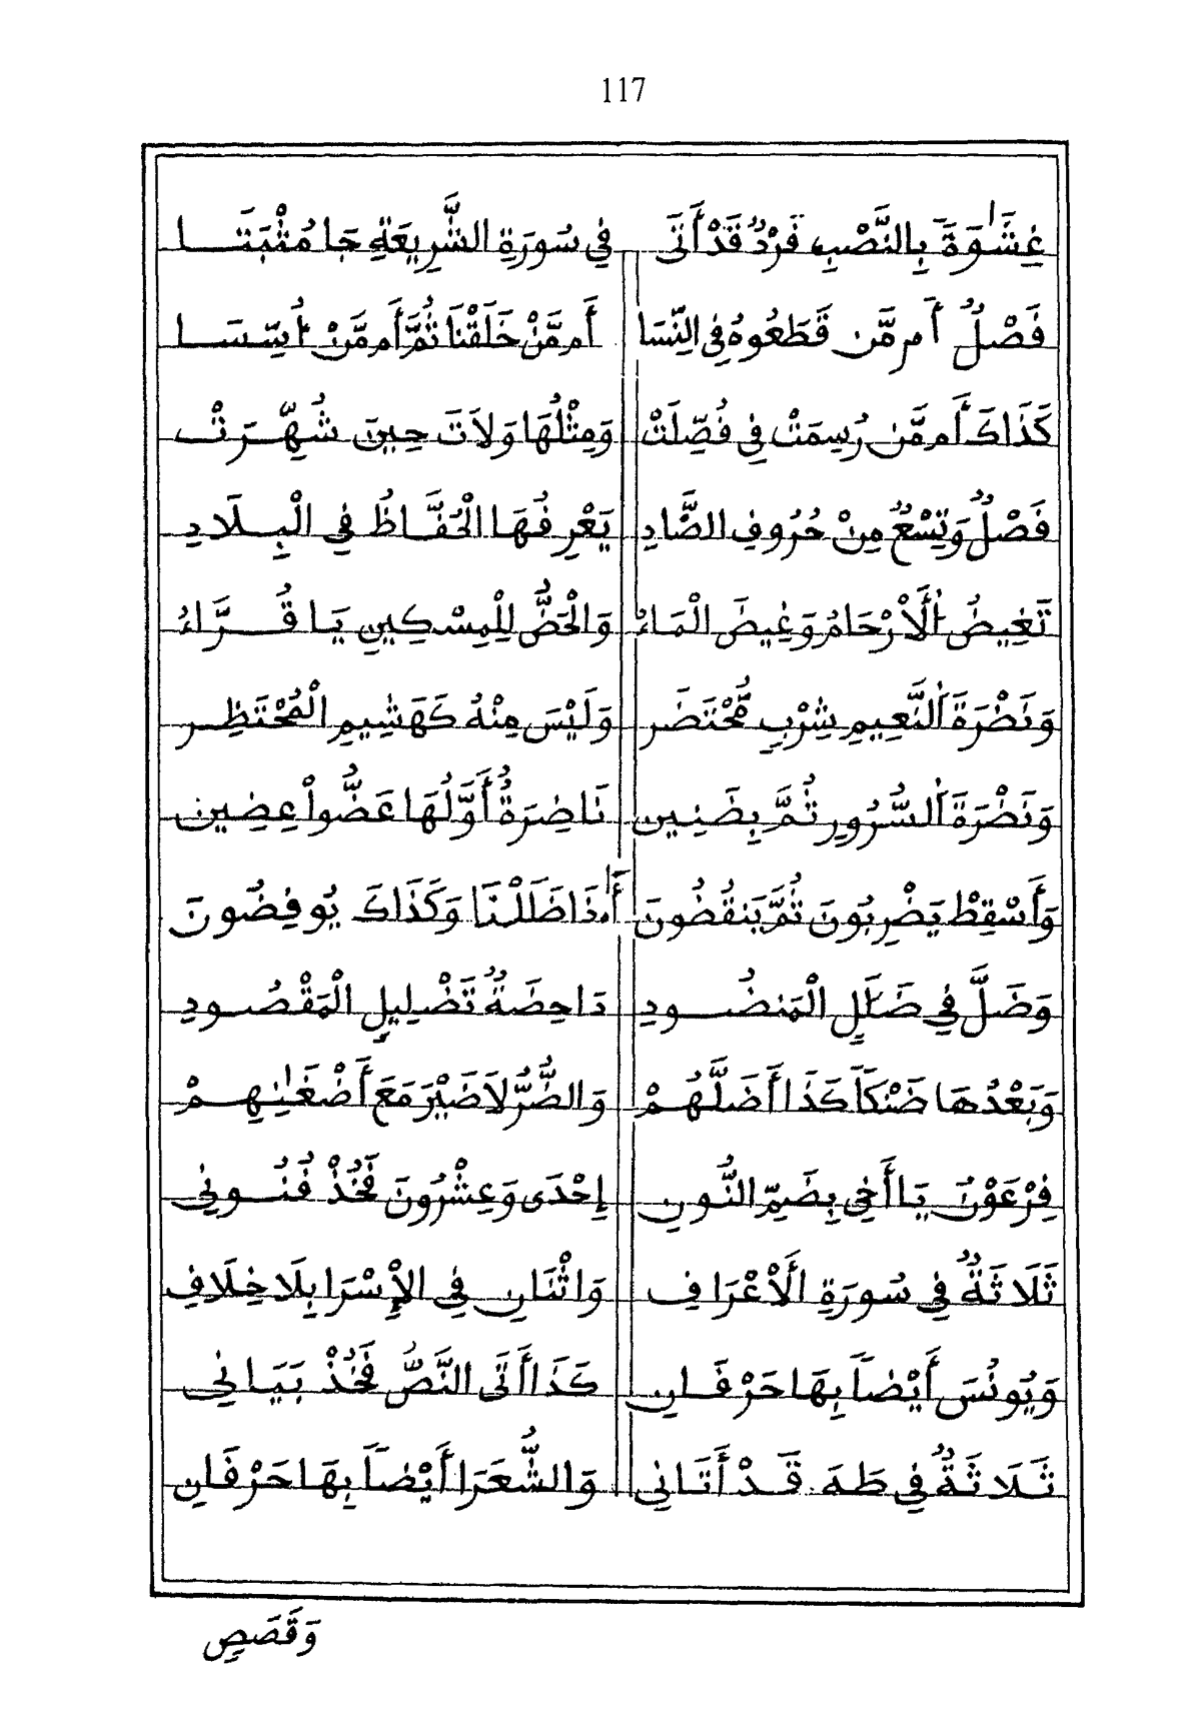 117
غِشَٰوَةً بِالنَّصْبِ فَرْدٌ قَدْ أَتَى فِي سُورَةِ الشَّرِيعَةِ جَا مُثْبَتَا
فَصْلٌ أَم مَّن قَطَعُوهُ فِي النِّسَا أَم مَّنْ خَلَقْنَا ثُمَّ أَم مَّنْ أُسِّسَا
كَذَاكَ أَم مَّن رُسِمَتْ فِي فُصِّلَتْ وَمِثْلُهَا وَلَاتَ حِينَ شُهِّرَتْ
فَصْلٌ وَتِسْعٌ مِنْ حُرُوفِ الضَّادِ يَعْرِفُهَا الْحُفَّاظُ فِي الْبِلَادِ
تَغِيضُ الْأَرْحَامُ وَغِيضَ الْمَاءُ وَالْحَضُّ لِلْمِسْكِينِ يَا قُرَّاءُ
وَنَضْرَةَ النَّعِيمِ شِرْبٍ مُّحْتَضَر وَلَيْسَ مِنْهُ كَهَشِيمِ الْمُحْتَظِر
وَنَضْرَةَ السُّرُورِ ثُمَّ بِضَنِين نَاضِرَةٌ أَوَّلُهَا عَضُّواْ عِضِين
وَأَسْقِطْ يَضْرِبُونَ ثُمَّ يَنقُضُونَ أَ.ذَا ضَلَلْنَا وَكَذَاكَ يُوفِضُونَ
وَضَلَّ فِي ضَلَٰلٍ الْمَنضُودِ دَاحِضَةٌ تَضْلِيلٍ الْمَقْصُودِ
وَبَعْدُهَا ضَنْكاً كَذَا أَضَلَّهُمْ وَالضُّرُّ لَا ضَيْرَ مَعَ أَضْغَٰنِهِمْ
فِرْعَوْنُ يَا أَخِي بِضَمِّ النُّونِ إِحْدَى وَعِشْرُونَ فَخُذْ فُنُونِي
ثَلَاثَةٌ فِي سُورَةِ الْأَعْرَافِ وَاثْنَانِ فِي الْإِسْرَا بِلَا خِلَافِ
وَيُونُسَ أَيْضاً بِهَا حَرْفَانِ كَذَا أَتَى النَّصُّ فَخُذْ بَيَانِي
ثَلَاثَةٌ فِي طَهَ قَدْ أَتَانِي وَالشُّعَرَا أَيْضاً بِهَا حَرْفَانِ
وَقَصَصِ